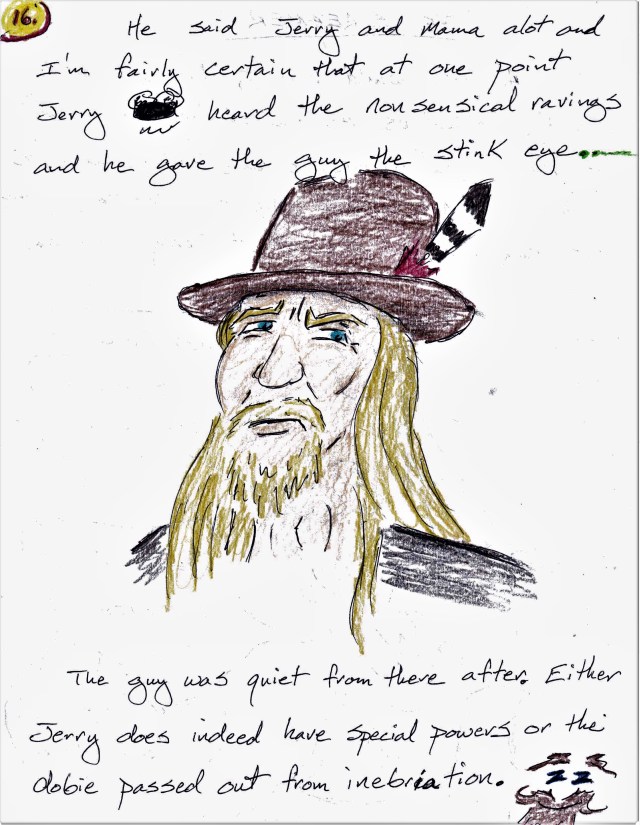 16.
He said Jerry and Mama alot and
I'm fairly certain that at one point
Jerry heard the nonsensical ravings
and he gave the guy the stink eye.
The guy was quiet from there after. Either
Jerry does indeed have special powers or the
dobie passed out from inebriation.
z z